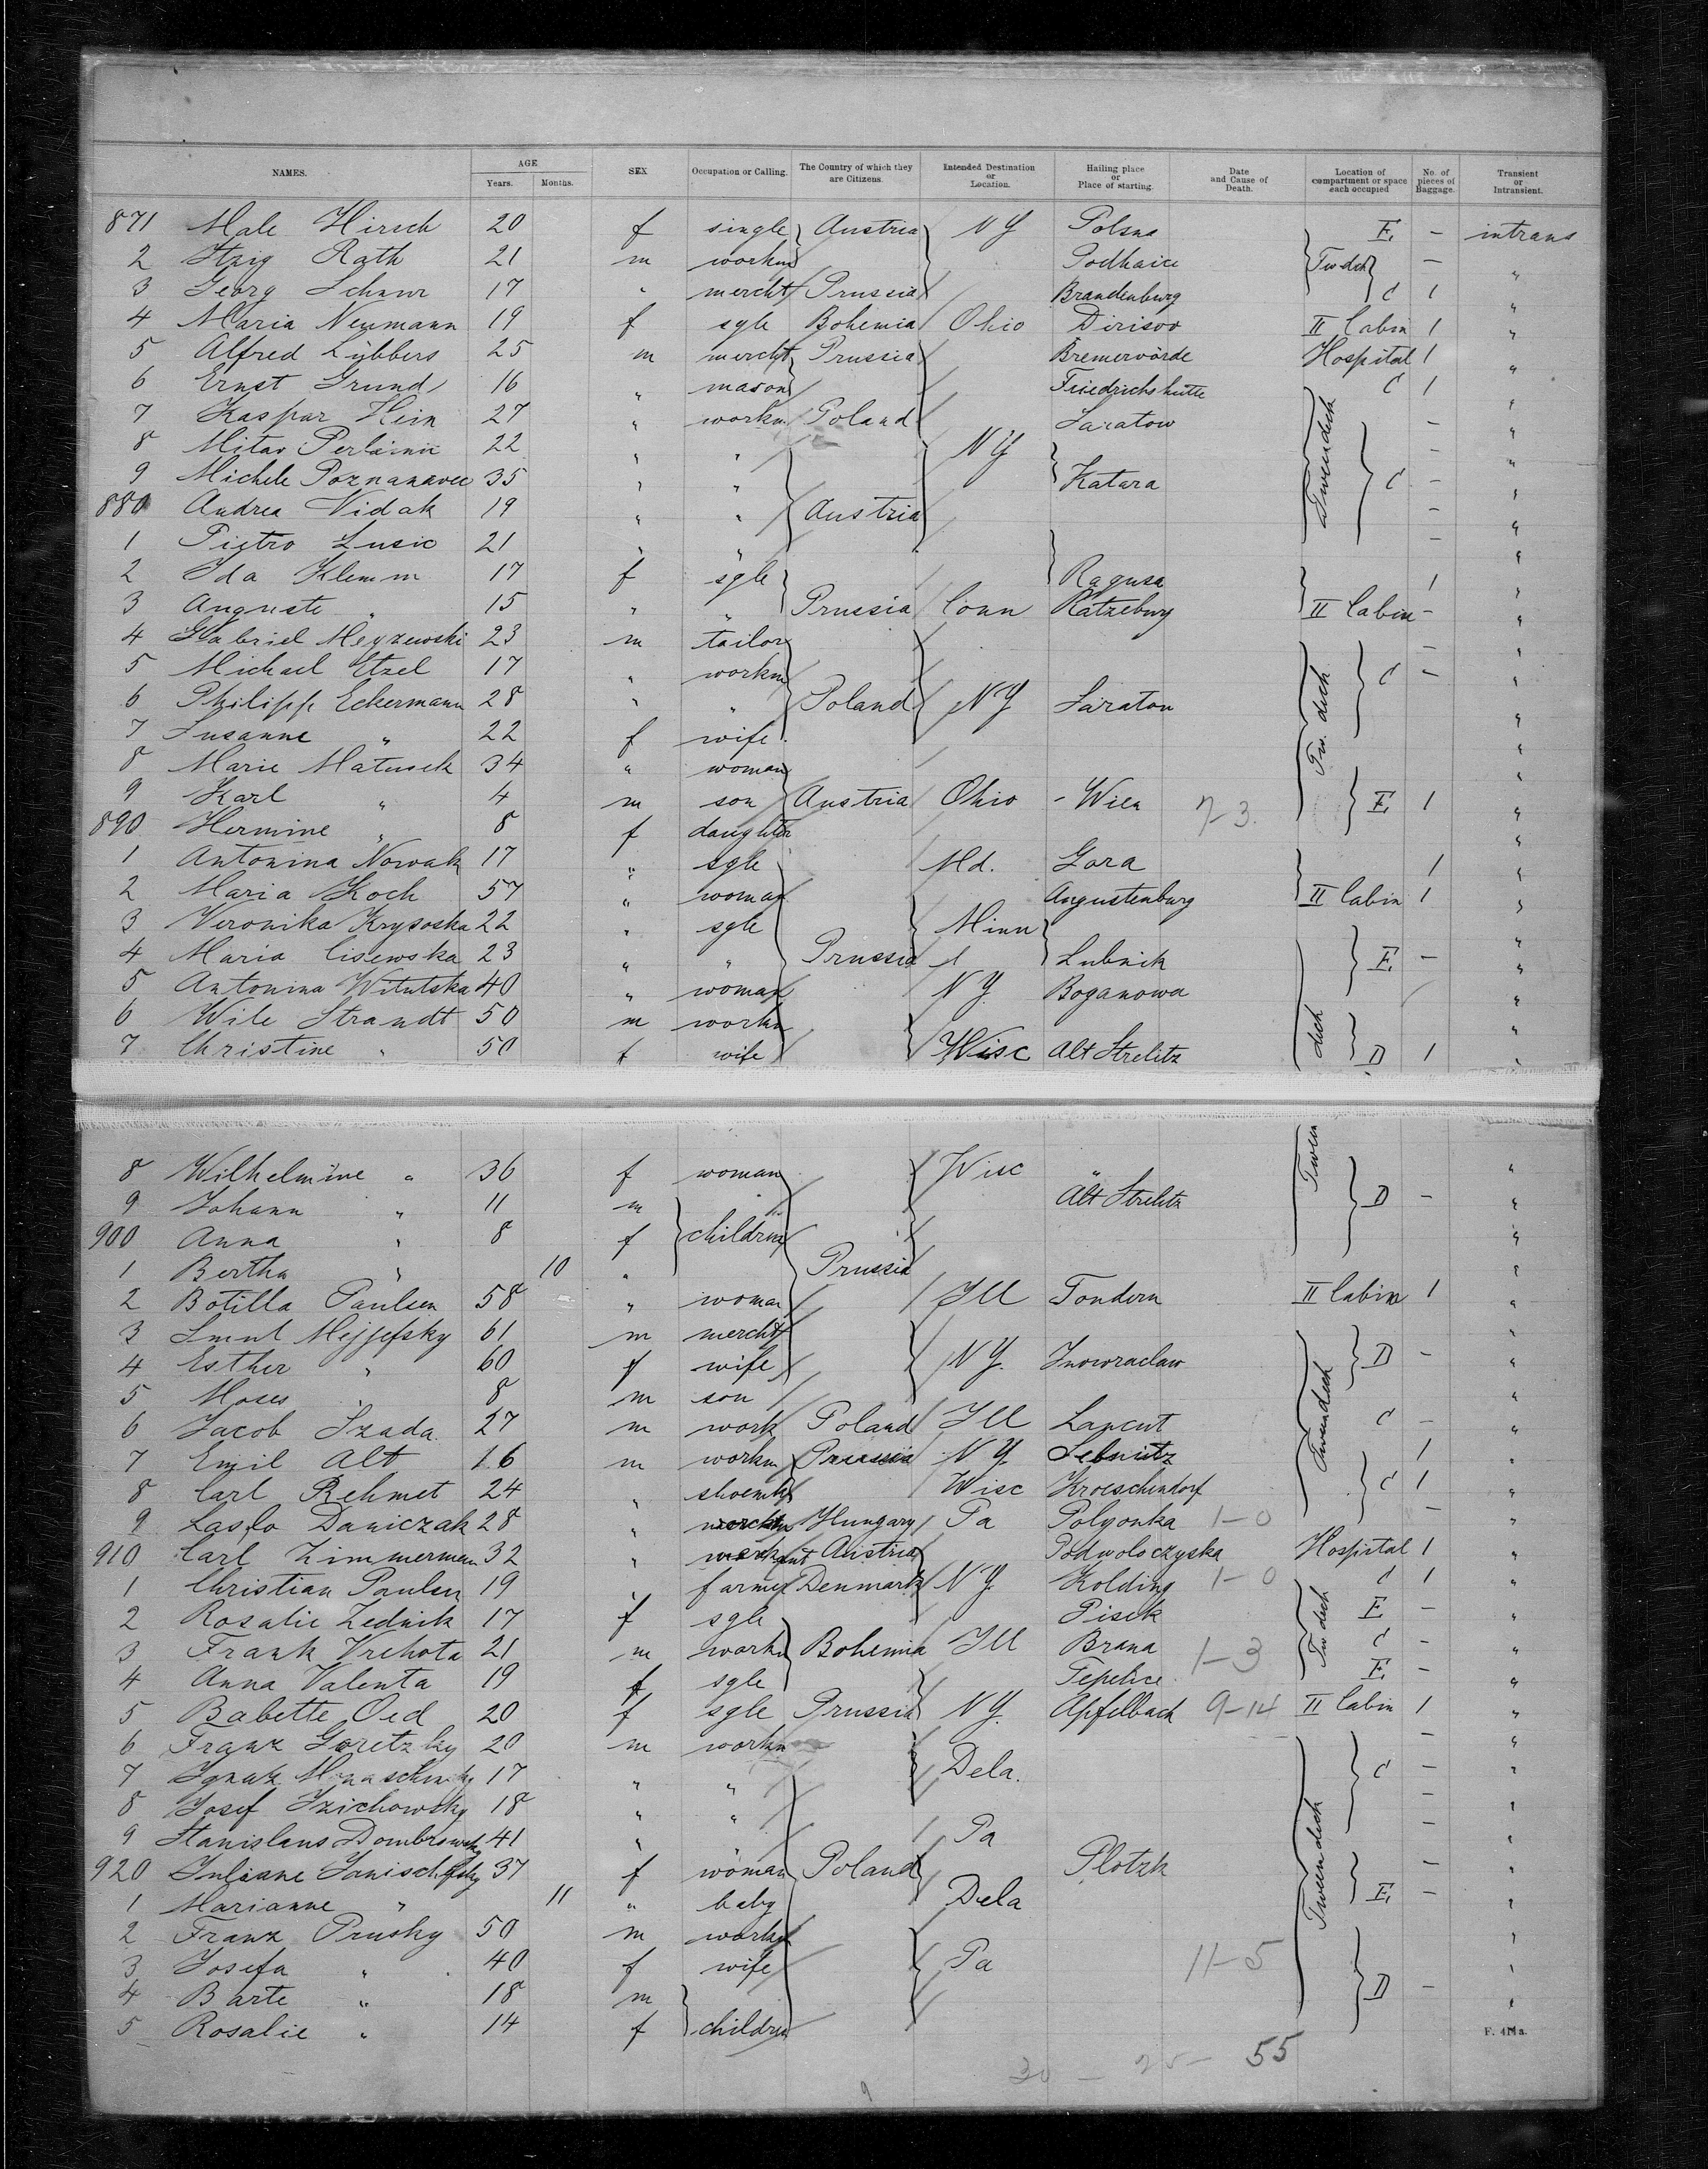 NAMES. AGE Years. Months. SEX Occupation or Calling. The Country of which they are Citizens. Intended Destination or Location. Hailing place or Place of starting. Date and Cause of Death. Location of compartment or space each occupied No. of pieces of Baggage. Transient or Intransient.
871 Male Hirsch 20 f single Austria NY Polsna E - intrans
2 Itzig Rath 21 m workm Podhaice Twdch - "
3 Georg Schnur 17 " mercht Prussia Brandenburg C 1 "
4 Maria Neumann 19 f sgle Bohemia Ohio Dirisov II Cabin 1 "
5 Alfred Lübbers 25 m mercht Prussia Bremervörde Hospital 1 "
6 Ernst Grund 16 " mason Friedrichshütte C 1 "
7 Kaspar Hein 27 " workm Poland Saratow Tweendeck - "
8 Mitar 22 " " NY - "
9 Michele Poznanavec 35 " " Katara C - "
880 Andrea Vidak 19 " " Austria - "
1 Pietro Lusic 21 " " - "
2 Ida Klemm 17 f sgle Ragusa 1 "
3 Auguste " 15 " " Prussia Conn Ratzeburg II Cabin - "
4 Gabriel Meyzewski 23 m tailor - "
5 Michael Etzel 17 " workm C - "
6 Philipp Eckermann 28 " " Poland NY Saraton Tw. deck "
7 Susanne " 22 f wife "
8 Marie Matusek 34 " woman "
9 Karl " 4 m son Austria Ohio - Wien 7-3. E 1 "
890 Hermine " 8 f daughter "
1 Antonina Nowak 17 " sgle Md. Gora 1 "
2 Maria Koch 57 " woman Angustenburg II Cabin 1 "
3 Veronika Krysoska 22 " sgle Minn "
4 Maria Cisewska 23 " " Prussia Lubnik E - "
5 Antonina Witutska 40 " woman NY Boganowa "
6 Wile Strandt 50 m workm "
7 Christine " 50 f wife Wisc Alt Strelitz deck D 1 "
8 Wilhelmine " 36 f woman Wisc " Tween "
9 Johann " 11 m Alt Strelitz D - "
900 Anna " 8 f children "
1 Bertha " 10 " Prussia "
2 Botilla Paulsen 58 " woman Ill Tondern II Cabin 1 "
3 Smul Mejjefsky 61 m mercht "
4 Esther " 60 f wife NY. Inowraclaw D - "
5 Moses " 8 m son "
6 Jacob Szada 27 m work Poland Ill Lancut Tweendeck C - "
7 Emil Alt 16 m workm Prussia NY. Sebnitz 1 "
8 Carl Rehmet 24 " shoemkr Wisc Kroeschendorf C 1 "
9 Laslo Daniczak 28 " Hungary Pa Polyonka 1-0 - "
910 Carl Zimmermann 32 " merchant Austria Podwoloczyska Hospital 1 "
1 Christian Paulsen 19 " farmer Denmark NY. Kolding 1-0 C 1 "
2 Rosalie Zednik 17 f sgle Pisek Tw deck E - "
3 Frank Vrchota 21 m workm Bohemia Ill Brana 1-3 C - "
4 Anna Valenta 19 f sgle Tepelice E - "
5 Babette Oed 20 f sgle Prussia NY. Apfelbach 9-14 II Cabin 1 "
6 Franz Goretzky 20 m workm - "
7 Ignatz 17 " " Dela. C - "
8 Josef Izichowsky 18 " " - "
9 Stanislaus Dombrowsky 41 " Pa - "
920 Juliane Janischefsky 37 f woman Poland Plotzk Tweendeck - "
1 Marianne " 11 " baby Dela E - "
2 Franz Prusky 50 m workm "
3 Josefa " 40 f wife Pa 11-5 "
4 Barte " 18 m D - "
5 Rosalie " 14 f children
F. 411a.
30 - 25 - 55
9